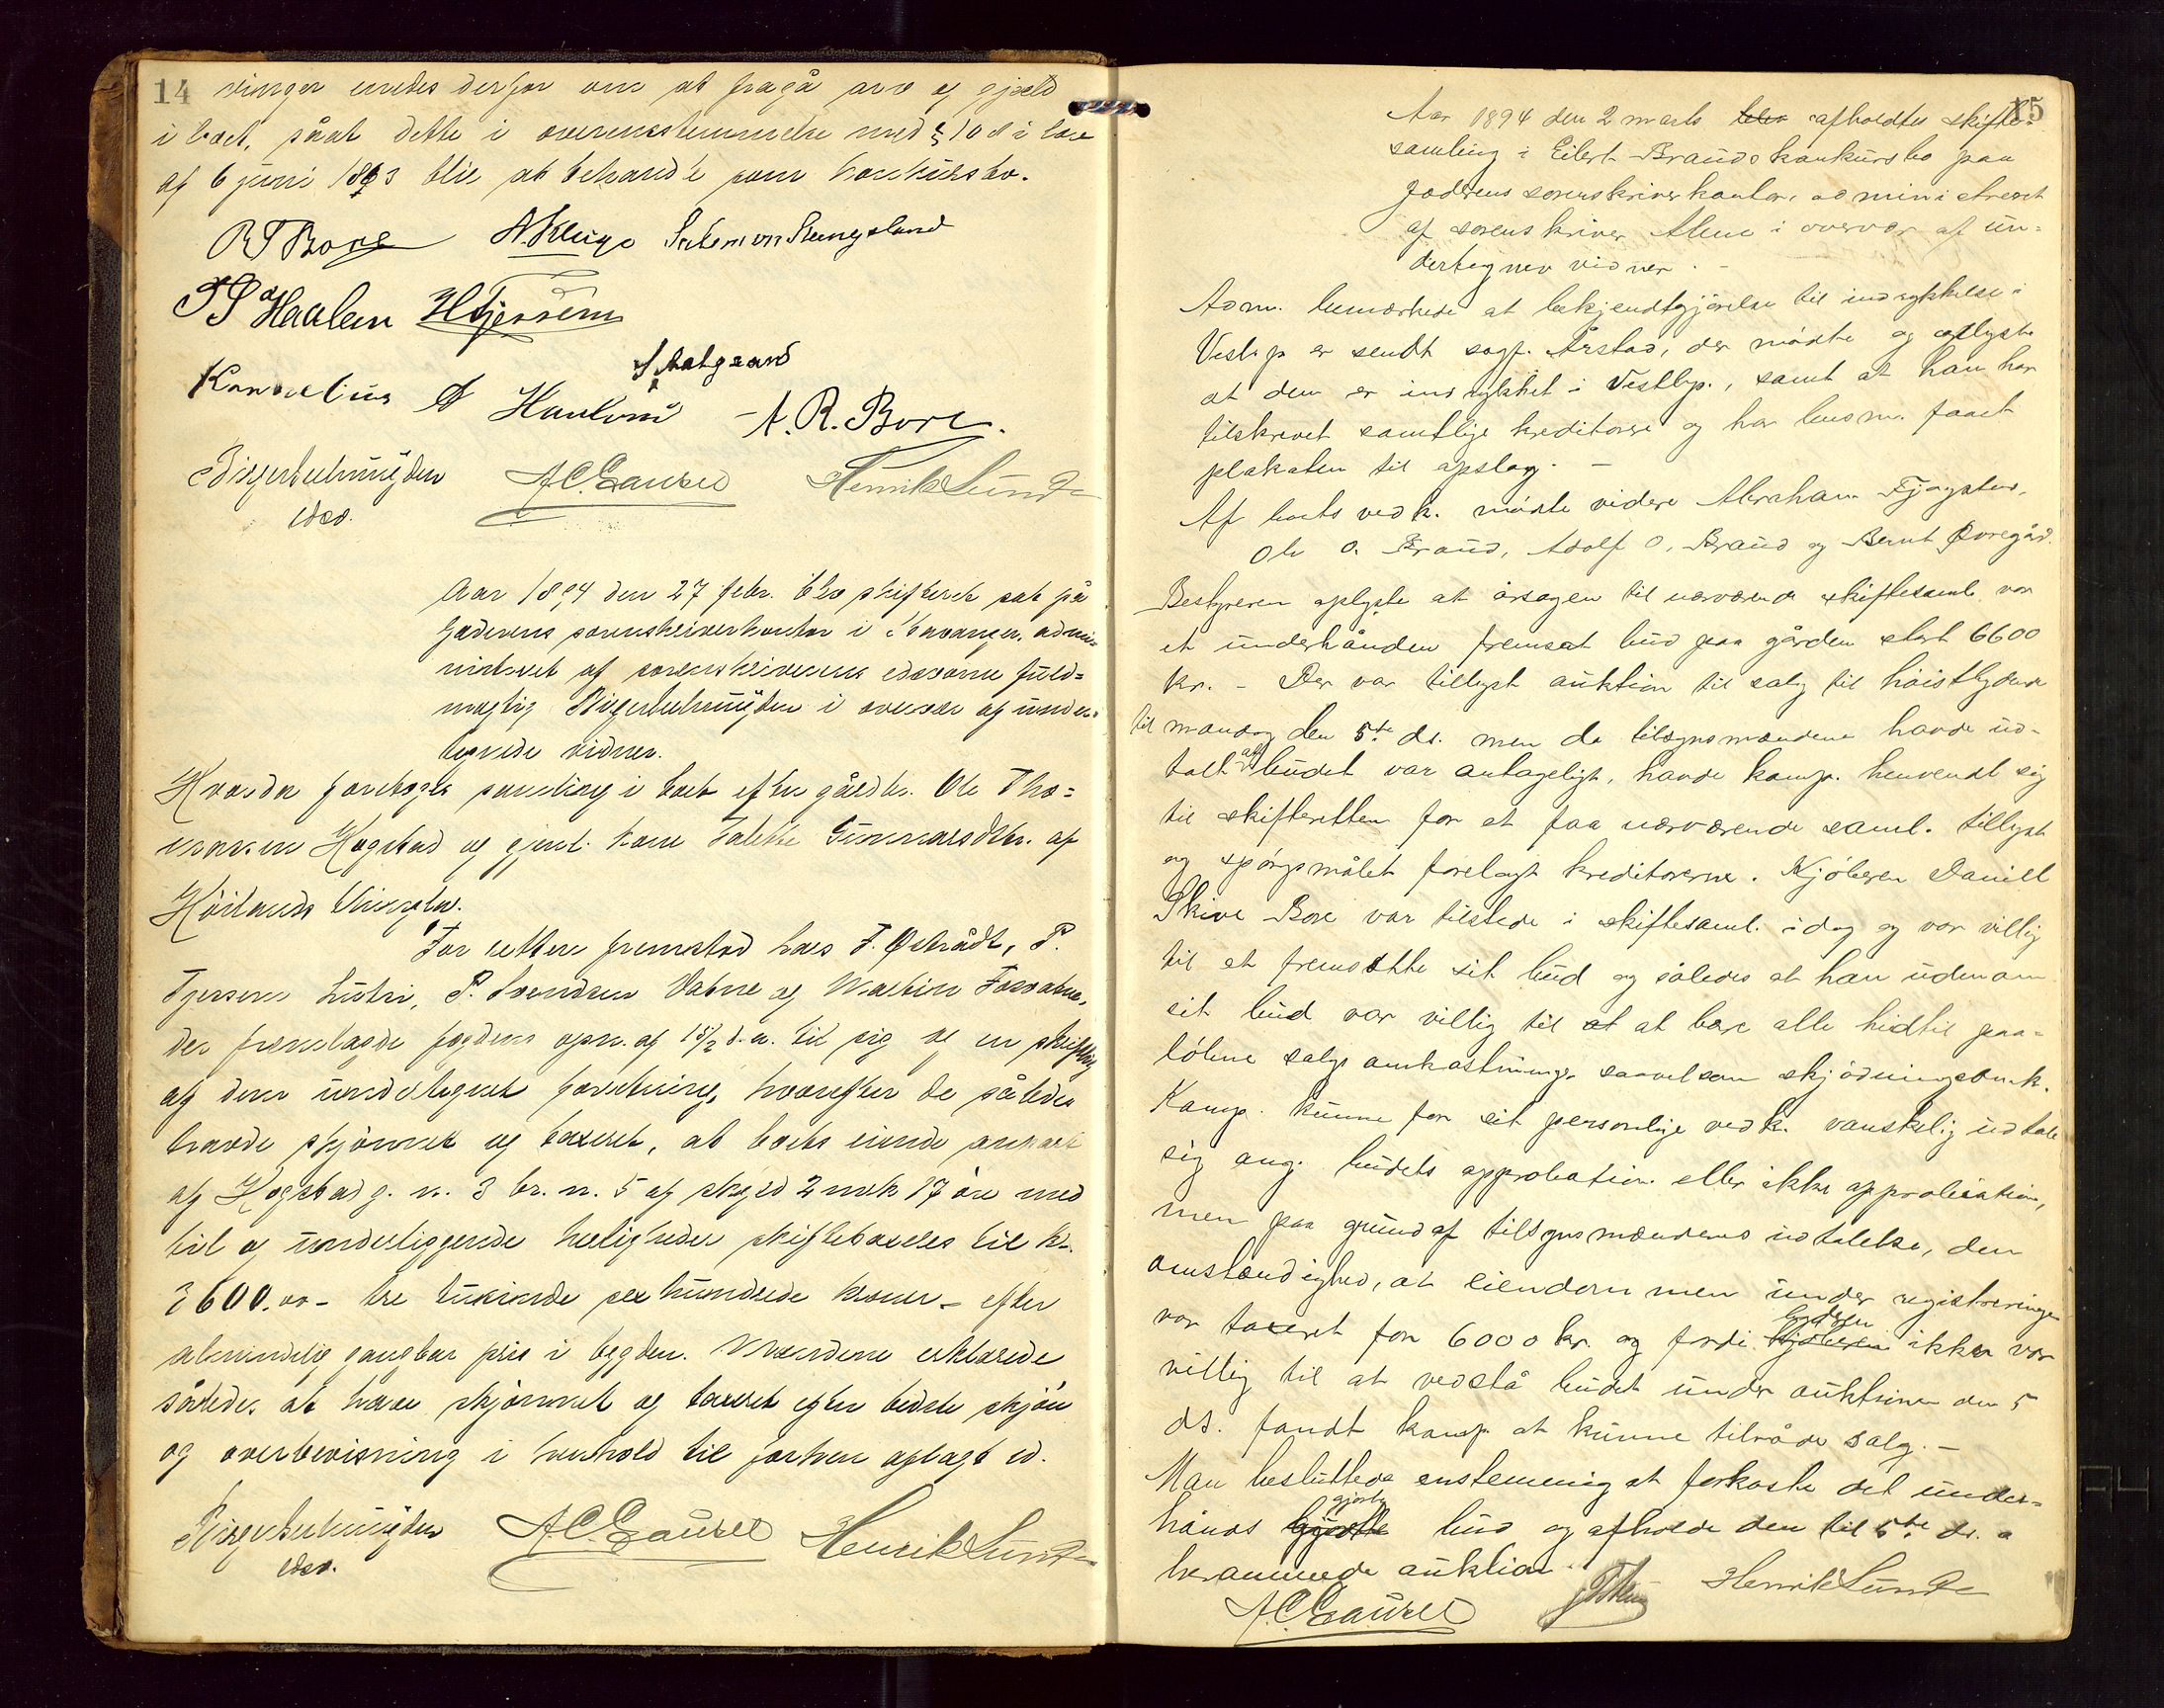 14
vinger enedes derfor om at fragå arv og gjæld
i boet, såat dette i overensstemmelse med § 108 i lov
af 6 juni 1863 blir at behandle som konkursbo.
A. Kluge Salomon Stangeland
T S Haaland H Tjersem
Kornelius A Hanksen
A. R. Bore.
A.C. Gausel Henrik Lunde
edsv.
Aar 1894 den 27 febr. blev skifteret sat på
Jæderens sorenskriverkontor i Stavanger, admi-
nistreret af sorenskriverens edsvorne fuld-
mægtig i overvær af under-
tegnede vidner.
Hvorda foretoges samling i boet efter gårdbr. Ole Tho-
massen Hogstad og gjenl. kone Talette Gunnarsdtr. af
Høilands thinglag.
For retten fremstod Lars T. Østrådt, P.
Tjersem Lutsi, P. Svendsen Vatne og Martin Fosvatne,
der fremlagde fogdens opn. af 15/2 d.a. til sig og en skriftlig
af dem undertegnet forretning, hvorefter de således
havde skjønnet og taxeret, at boets eiende anpart
af Hogstad g. n. 3 br. n. 5 af skyld 2 mrk 17 øre med
til og underliggende herligheder skiftetaxeres til kr.
3600.00 - tre tusinde sex hundrede kroner - efter
almindelig gangbar pris i bygden. Mændene erklærede
således at have skjønnet og taxeret efter bedste skjøn
og overbevisning i henhold til forhen aflagt ed.
A.C. Gausel Henrik Lunde
edsv.
15
Aar 1894 den 2 marts blev afholdtes skifte-
samling i Eilert Brauds konkursbo paa
Jæderens sorenskriverkontor, administreret
af sorenskriver i overvær af un-
dertegnede vidner. -
Adm. bemærkede at bekjendtgjørelse til indrykkelse i
Vestlp er sendt sagf. Årstad, der mødte og oplyste
at den er indrykket i Vestlp., samt at han har
tilskrevet samtlige kreditorer og har lensm. faaet
plakaten til opslag. -
Af boets vedk. mødte videre Abraham Fjogstad,
Ole O. Braud, Adolf O. Braud og Bernt Øvregård.
Bestyreren oplyste at årsagen til nærværende skiftesaml. var
et underhånden fremsat bud paa gården stort 6600
kr. - Der var tillyst auktion til salg til høistbydende
til mandag den 5te ds. men da tilsynsmændene havde ud-
talt at budet var antageligt, havde komp. henvendt sig
til skifteretten for at faa nærværende saml. tillyst
og spørgsmålet forelagt kreditorerne. Kjøberen Daniel
Skive Bore var tilstede i skiftesaml. idag og var villig
til at fremsætte sit bud og således at han udenom
sit bud var villig til at at bære alle hidtil paa-
løbne salgsomkostninger saavelsom skjødningsomk.
Komp. kunne for sit personlige vedk. vanskelig udtale
sig ang. budets approbation eller ikke approbation,
men paa grund af tilsynsmændenes udtalelse, den
omstændighed, at eiendommen under registreringen
var taxeret for 6000 kr. og fordi kjøberen byderen ikke var
villig til at vedstå budet under auktionen den 5
ds. fandt komp. at kunne tilråde salg. -
Man besluttede enstemmig at forkaste det under-
hånds gjorte bud og afholde den til 5te ds. a
berammede auktion.
A.C. Gausel Henrik Lunde